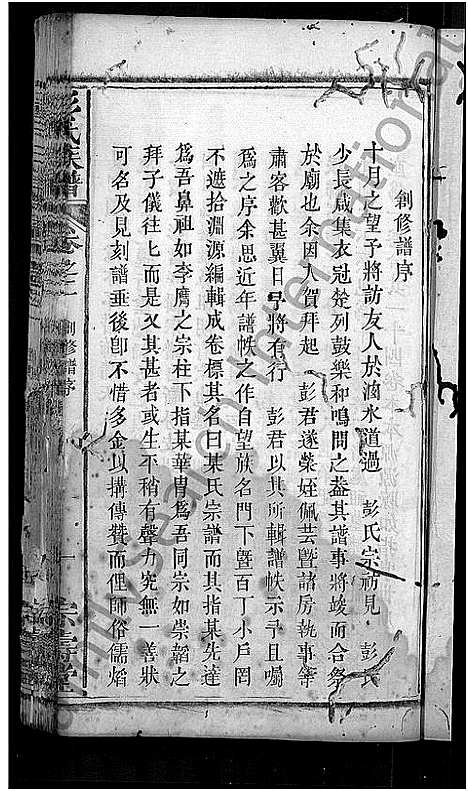 創修譜序
十月之望予將訪友人於滷水道過 彭氏宗祠見 彭氏
少長咸集衣冠楚列鼓樂和鳴問之葢其譜事將竣而合祭
於廟也余因人賀拜起 彭君遂榮姪佩芸暨諸房執事等
肅客歡甚翼日予將有行 彭君以其所輯譜帙示予且囑
爲之序余思近年譜帙之作自望族名門下暨百丁小戶罔
不遮拾淵源編輯成卷標其名曰某氏宗譜而其指某先達
爲吾鼻祖如李鷹之宗柱下指某華胄爲吾同宗如崇韜之
拜子儀往匕而是又其甚者或生不稍有聲力究無一善狀
可名及見刻譜垂後卽不惜多金以搆傳贊而俚師俗儒熖
彭氏族譜
卷之一
創修譜序
一
崇壽堂